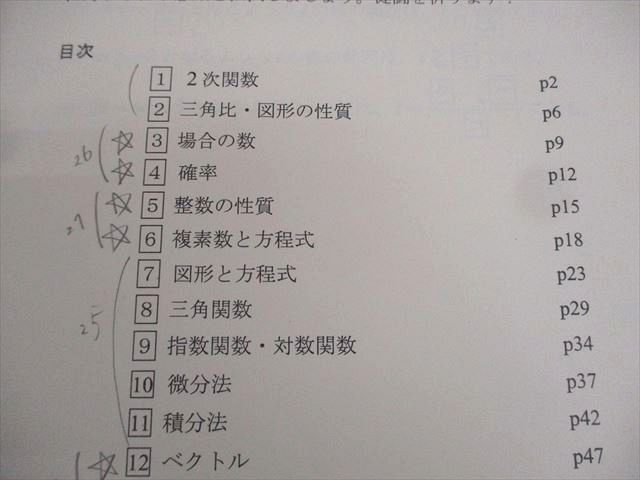 目次
1 2次関数 p2
2 三角比・図形の性質 p6
26 ☆ 3 場合の数 p9
☆ 4 確率 p12
27 ☆ 5 整数の性質 p15
☆ 6 複素数と方程式 p18
7 図形と方程式 p23
25 8 三角関数 p29
9 指数関数・対数関数 p34
10 微分法 p37
11 積分法 p42
☆ 12 ベクトル p47